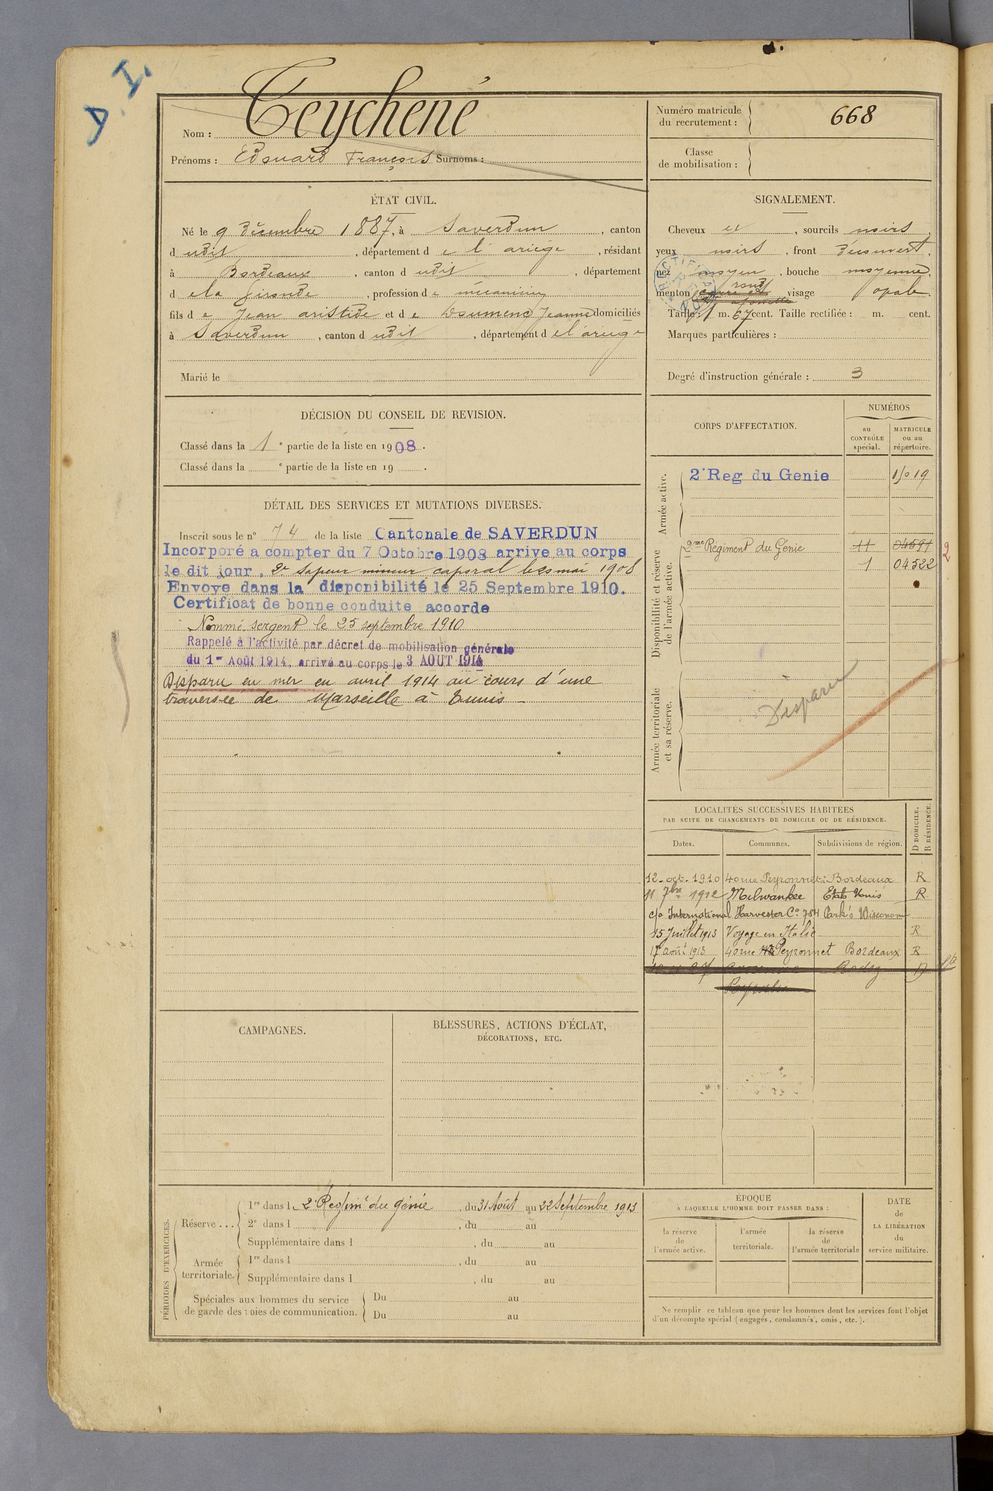 D. I.
Nom : Teychené
Prénoms : Edouard François Surnoms :
Numéro matricule du recrutement : 668
Classe de mobilisation :
ÉTAT CIVIL.
Né le 9 Décembre 1887, à Saverdun, canton
d udit, département de l'ariège, résidant
à Bordeaux, canton d udit, département
d e la Gironde, profession de mécanicien
fils de Jean aristide et de Doumenc Jeanne domiciliés
à Saverdun, canton d udit, département d el'ariège
Marié le
SIGNALEMENT.
Cheveux et, sourcils noirs
yeux noirs, front Découvert,
nez moyen, bouche moyenne
menton rond visage opale
Taille : 1 m. 67 cent. Taille rectifiée : m. cent.
Marques particulières :
Degré d'instruction générale : 3
DÉCISION DU CONSEIL DE REVISION.
Classé dans la 1e partie de la liste en 1908.
Classé dans la e partie de la liste en 19 .
DÉTAIL DES SERVICES ET MUTATIONS DIVERSES.
Inscrit sous le n° 74 de la liste Cantonale de SAVERDUN
Incorporé a compter du 7 Octobre 1908 arrive au corps
le dit jour, 2e Sapeur mineur, caporal le 20 mai 1908
Envoye dans la disponibilité le 25 Septembre 1910.
Certificat de bonne conduite accorde
Nommé sergent le 25 septembre 1910
Rappelé à l'activité par décret de mobilisation générale
du 1er Août 1914, arrivé au corps le 3 AOUT 1914
Disparu en mer en avril 1914 au cours d'une
traversée de Marseille à Tunis
CORPS D'AFFECTATION.
NUMÉROS
au CONTRÔLE spécial.
MATRICULE ou au répertoire.
Armée active.
2e Reg du Genie
Disponibilité et réserve de l'armée active.
2me Régiment du Génie 11
1 04322
2
Armée territoriale et sa réserve.
Disparu
LOCALITÉS SUCCESSIVES HABITÉES
PAR SUITE DE CHANGEMENTS DE DOMICILE OU DE RÉSIDENCE.
Dates. Communes. Subdivisions de région. D DOMICILE. R RÉSIDENCE.
12 - oct. 1910 40 rue Peyronnet Bordeaux R
11 7bre 1912 Milwankee Etats Unis R
c/o International Harvester Co 784 Park's Wisconon
15 Juillet 1913 Voyage en Italie R
17 août 1913 40 rue Peyronnet Bordeaux R
CAMPAGNES.
BLESSURES, ACTIONS D'ÉCLAT,
DÉCORATIONS, ETC.
PÉRIODES D'EXERCICES.
Réserve . . .
1re dans l 2e Regim't du génie, du 31 Août au 22 Septembre 1913
2e dans l , du au
Supplémentaire dans l , du au
Armée territoriale.
1re dans l , du au
Supplémentaire dans l , du au
Spéciales aux hommes du service de garde des voies de communication.
Du au
Du au
ÉPOQUE
A LAQUELLE L'HOMME DOIT PASSER DANS :
la réserve de l'armée active.
l'armée territoriale.
la réserve de l'armée territoriale
DATE de LA LIBÉRATION du service militaire.
Ne remplir ce tableau que pour les hommes dont les services font l'objet
d'un décompte spécial (engagés, condamnés, omis, etc.).